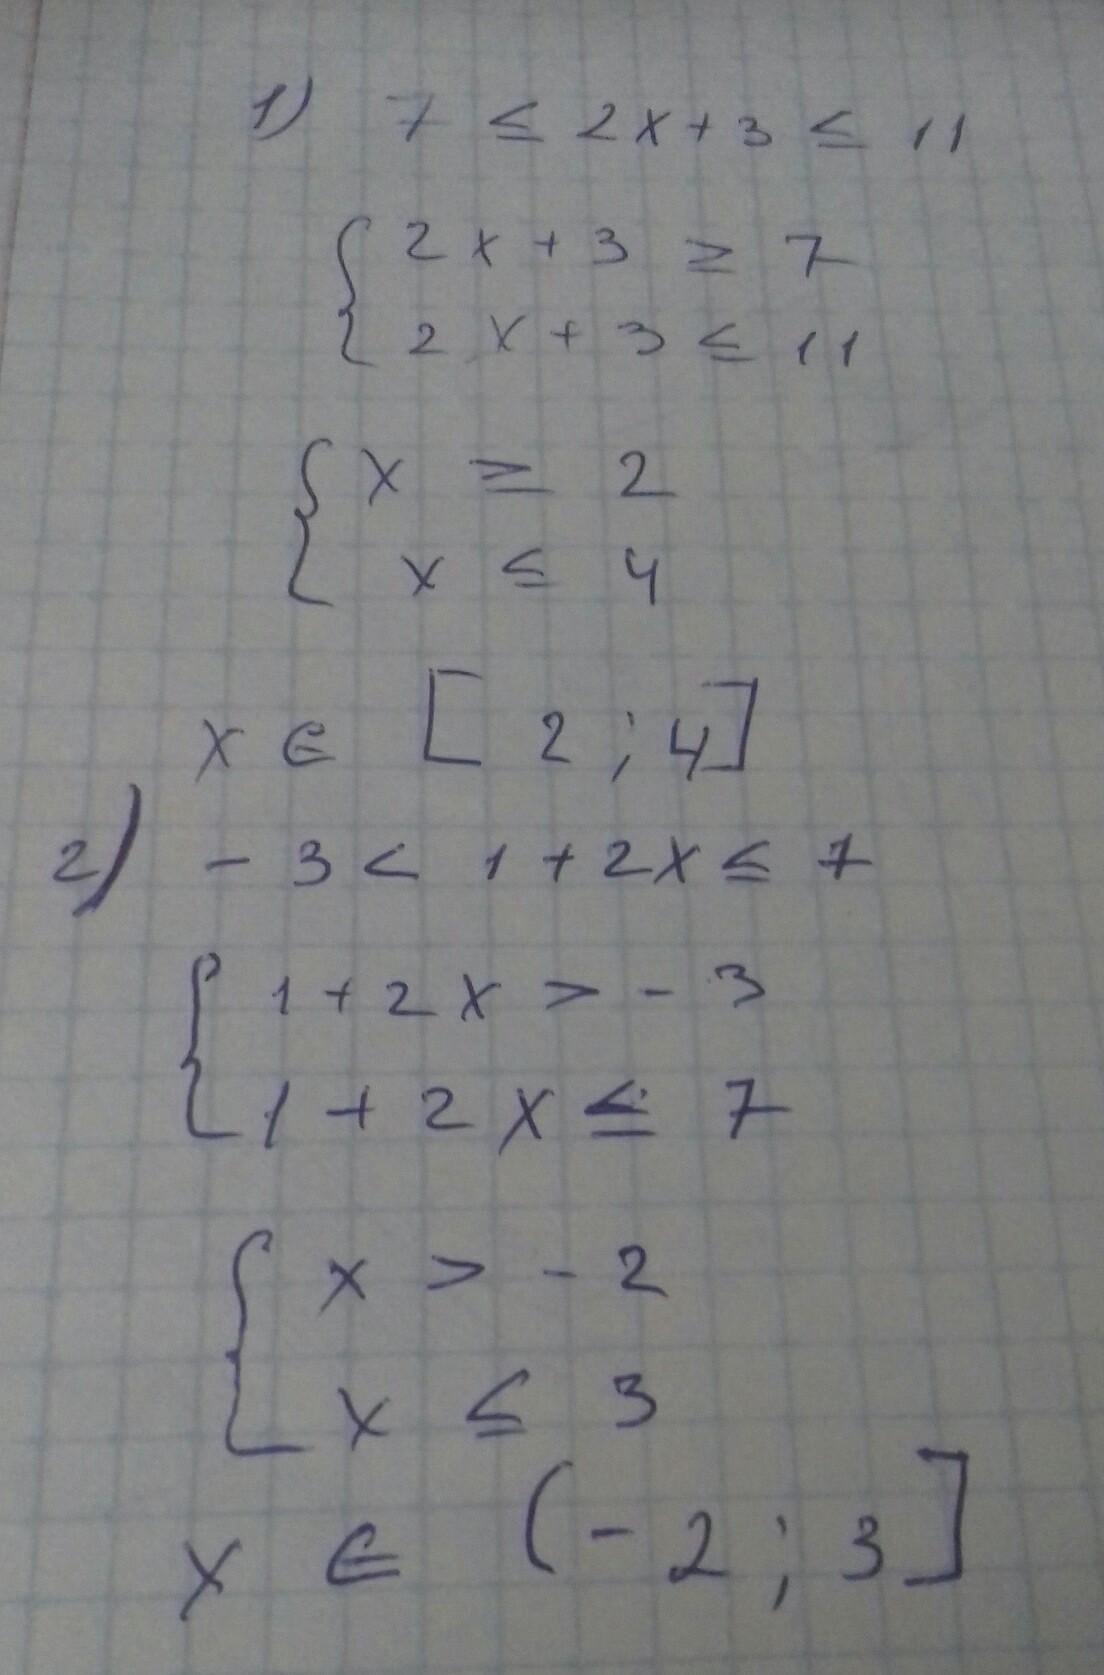 1) 7 ≤ 2x + 3 ≤ 11
{ 2x + 3 ≥ 7
2x + 3 ≤ 11
{ x ≥ 2
x ≤ 4
x ∈ [2 ; 4]
2) - 3 < 1 + 2x ≤ 7
{ 1 + 2x > - 3
1 + 2x ≤ 7
{ x > - 2
x ≤ 3
x ∈ (- 2 ; 3]